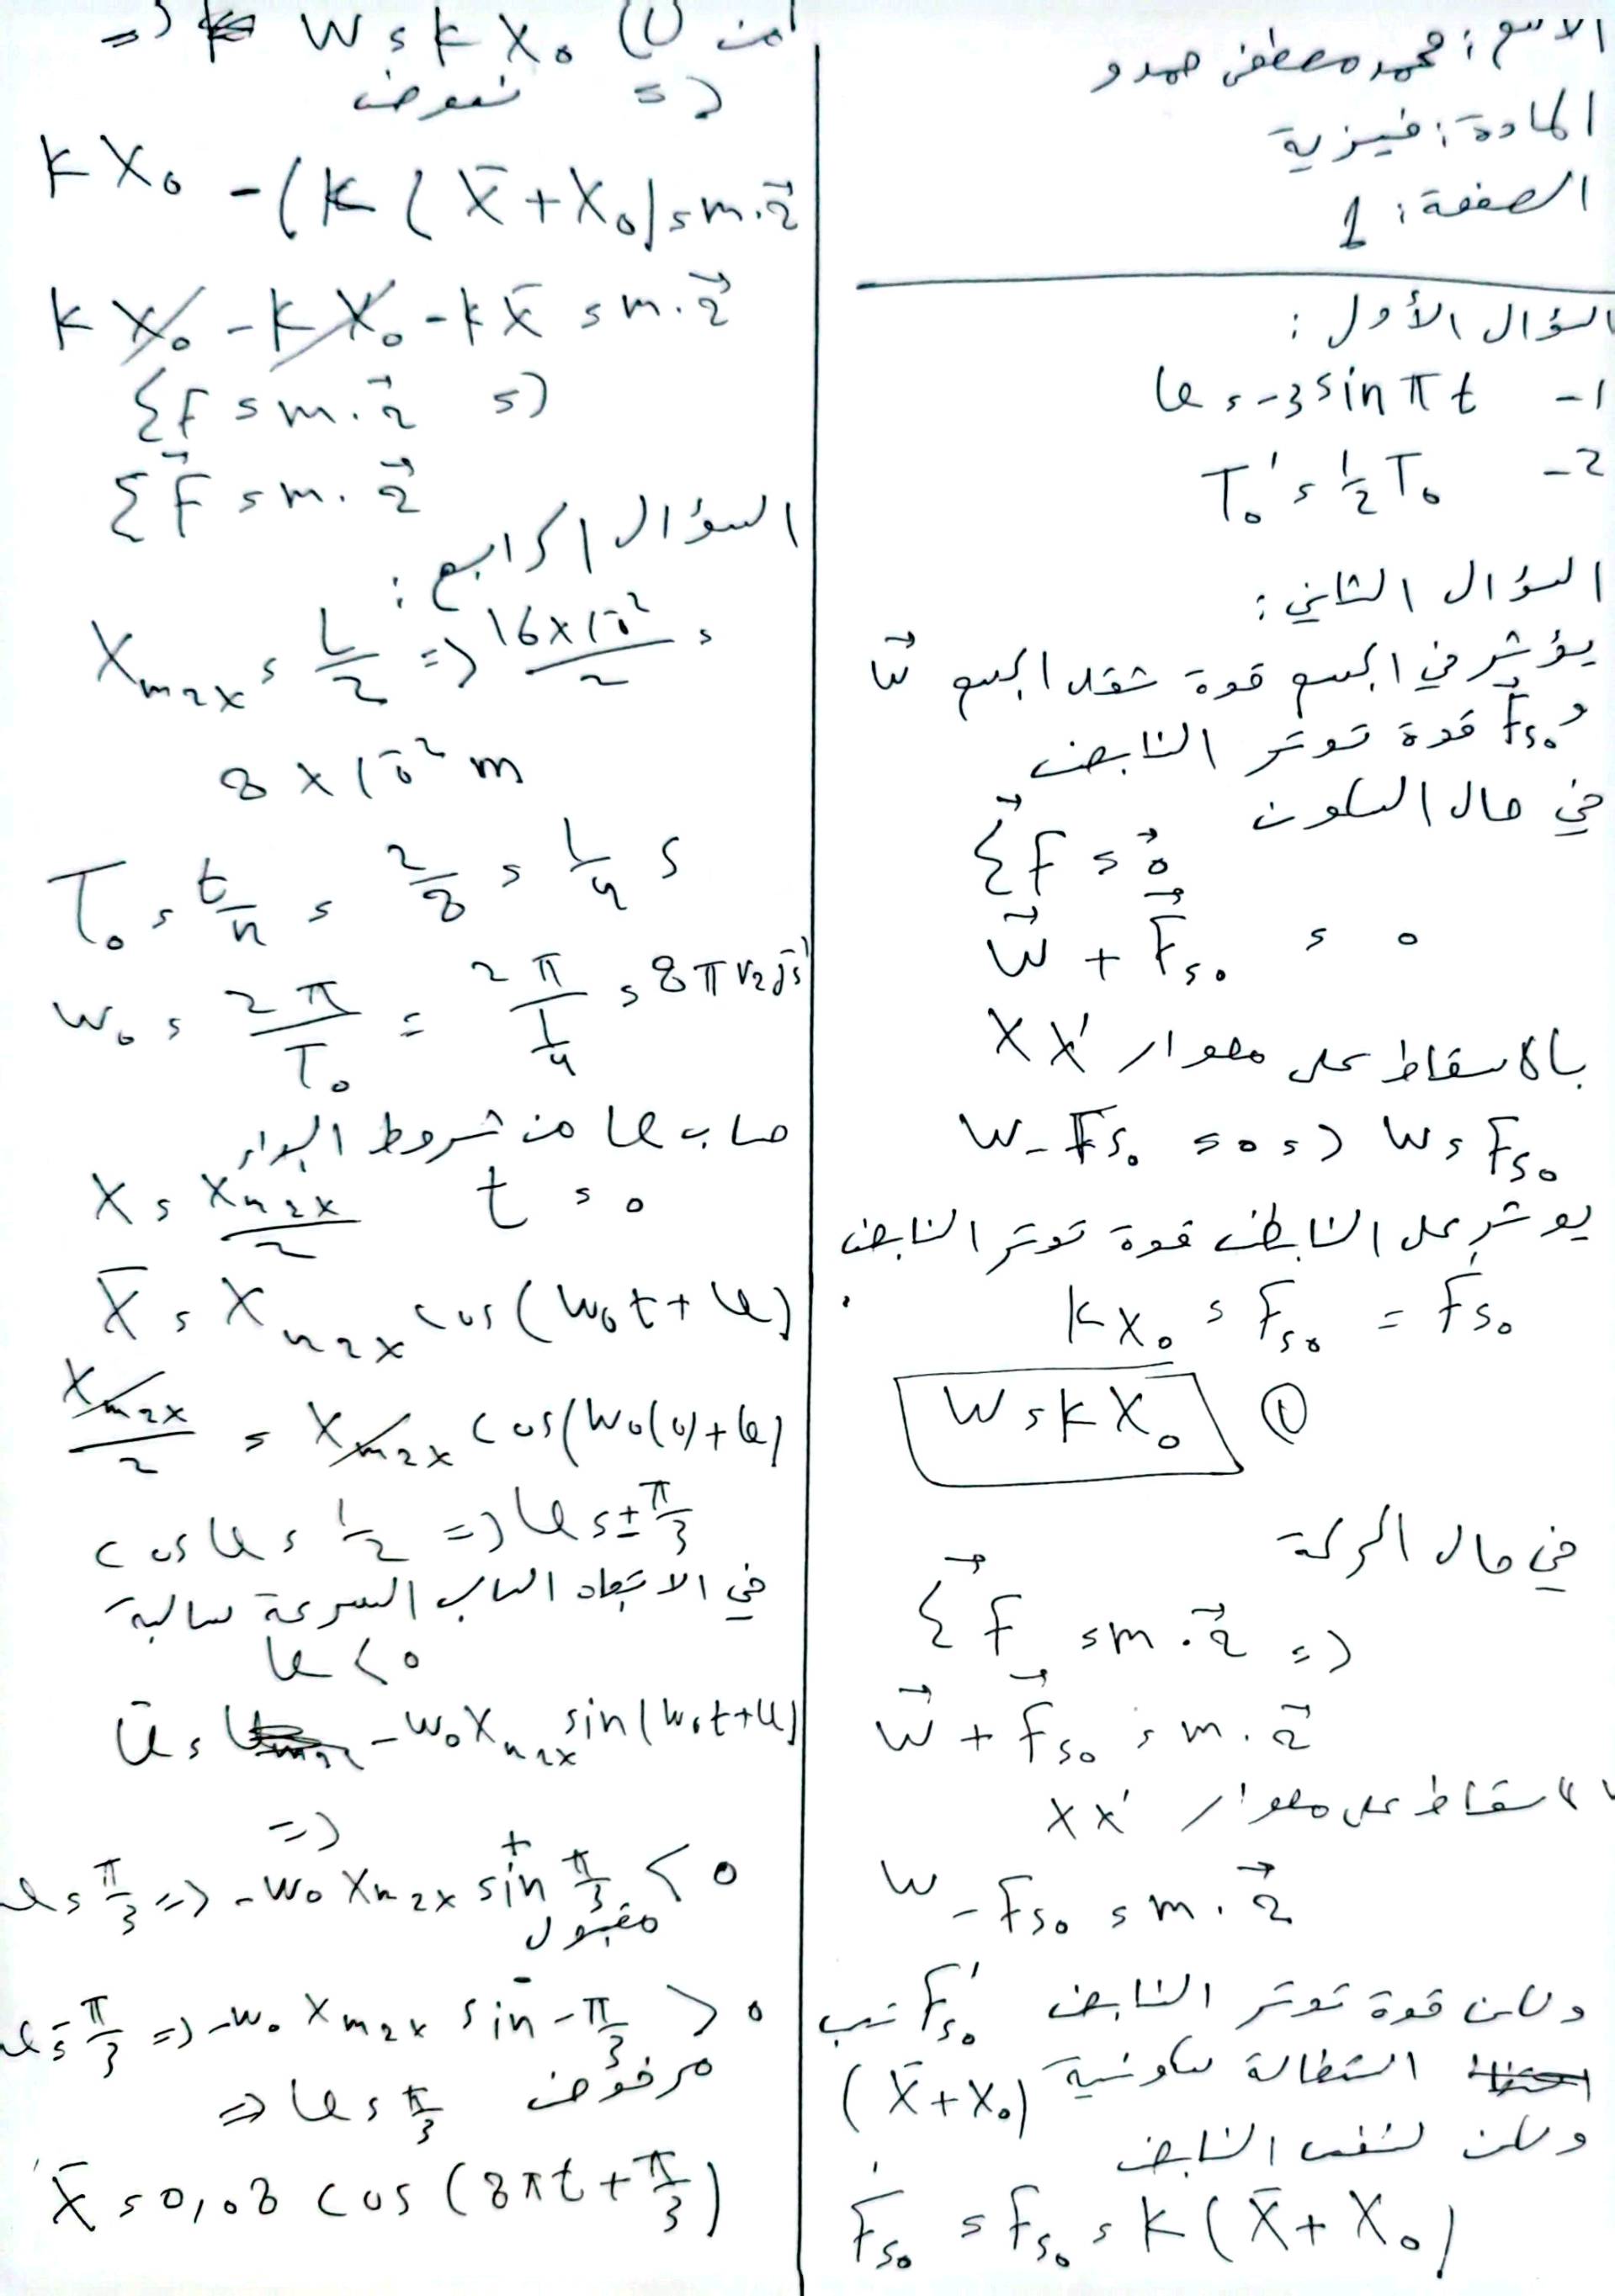 الاسم: محمد مصطفى حمدو
المادة: فيزية
الصفحة: 1
السؤال الأول:
1- φ = -3 sin π t
2- T₀' = 1/2 T₀
السؤال الثاني:
يؤثر في الجسم قوة ثقل الجسم W⃗
و F⃗s₀ قوة توتر النابض
في حال السكون
ΣF⃗ = 0⃗
W⃗ + F⃗s₀ = 0
بالاسقاط على محوار XX'
W - Fs₀ = 0 => W = Fs₀
يوثر على النابض قوة توتر النابض
kx₀ = Fs₀ = F's₀
W = kX₀ ①
في حال الحركة
ΣF⃗ = m.a⃗ =>
W⃗ + F⃗s₀ = m.a⃗
بالاسقاط على محوار xx'
W - Fs₀ = m.a⃗
ولكن قوة توتر النابض F's₀ تسبب
استطالة سكونية (x̄+x₀)
ولكن لنفس النابض
F's₀ = Fs₀ = k(X̄+X₀)
من (1) W = kX₀ =>
=> نعوض
kX₀ - (k(X̄+X₀) = m.a⃗
kX₀ - kX₀ - kX̄ = m.a⃗
ΣF = m.a⃗ =>
ΣF⃗ = m.a⃗
السؤال الرابع:
Xmax = L/2 => 16×10⁻²/2 =
8×10⁻² m
T₀ = t/n = 2/8 = 1/4 s
w₀ = 2π/T₀ = 2π/(1/4) = 8π rad s⁻¹
حساب φ من شروط البدء
X = Xmax/2 t = 0
X̄ = Xmax cos(w₀t+φ)
Xmax/2 = Xmax cos(w₀(0)+φ)
cosφ = 1/2 => φ = ±π/3
في الاتجاه السالب السرعة سالبة
v < 0
v̄ = -w₀Xmax sin(w₀t+φ)
=>
φ = π/3 => -w₀Xmax sin π/3 < 0
مقبول
φ = -π/3 => -w₀Xmax sin -π/3 > 0
مرفوض
=> φ = π/3
X̄ = 0,08 cos(8πt+π/3)